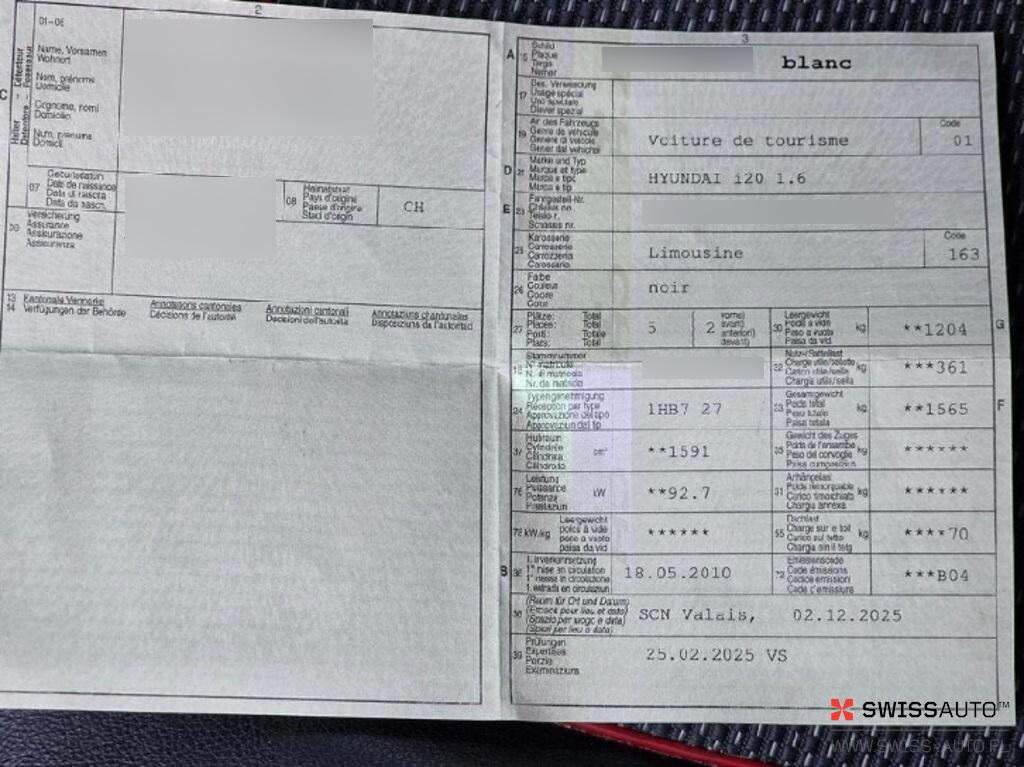 2
01-06
Name, Vornamen
Wohnort
Nom, prénoms
Domicile
Cognome, nomi
Domicilio
Num, prenums
Domicil
C
Halter Détenteur
07
Geburtsdatum
Date de naissance
Data di nascita
Data da nasch.
08
Heimatstaat
Pays d'origine
Paese d'origine
Stadi d'origin
CH
09
Versicherung
Assurance
Assicurazione
Assicuranza
13 Kantonale Vermerke
14 Verfügungen der Behörde
Annotations cantonales
Décisions de l'autorité
Annotazioni cantonali
Decisioni dell'autorità
Annotaziuns chantunalas
Disposiziuns da l'autoritad
3
A 15
Schild
Plaque
Targa
Numer
blanc
17
Bes. Verwendung
Usage spécial
Uso speciale
Diever spezial
19
Art des Fahrzeugs
Genre de véhicule
Genere di veicolo
Gener dal vehichel
Voiture de tourisme
Code
01
D 21
Marke und Typ
Marque et type
Marca e tipo
Marca e tip
HYUNDAI i20 1.6
E 23
Fahrgestell-Nr.
Châssis no.
Telaio n.
Schassis nr.
25
Karosserie
Carrosserie
Carrozzeria
Carossaria
Limousine
Code
163
26
Farbe
Couleur
Colore
Colur
noir
27
Plätze: Total
Places: Total
Posti: Totale
Plazs: Total
5
2
vorne)
avant)
anteriori)
davant)
30
Leergewicht
Poids à vide
Peso a vuoto
Paisa da vid
kg
**1204
G
18
Stammnummer
N° matricule
N. di matricola
Nr. da matricla
32
Nutz-/Sattellast
Charge utile/sellette
Carico utile/sella
Chargia utila/sella
kg
***361
24
Typengenehmigung
Réception par type
Approvazione del tipo
Approvaziun dal tip
1HB7 27
33
Gesamtgewicht
Poids total
Peso totale
Paisa totala
kg
**1565
F
37
Hubraum
Cylindrée
Cilindrata
Cilindrada
cm³
**1591
35
Gewicht des Zuges
Poids de l'ensemble
Peso del convoglio
Paisa cumposiziun
kg
******
76
Leistung
Puissance
Potenza
Prestaziun
kW
**92.7
31
Anhängelast
Poids remorquable
Carico rimorchiato
Chargia annexa
kg
******
78 kW/kg
Leergewicht
poids à vide
peso a vuoto
paisa da vid
******
55
Dachlast
Charge sur le toit
Carico sul tetto
Chargia sin il tetg
kg
****70
B 36
1. Inverkehrsetzung
1re mise en circulation
1a messa in circolazione
1. entrada en circulaziun
18.05.2010
72
Emissionscode
Code émissions
Codice emissioni
Code d'emissiuns
***B04
38
(Raum für Ort und Datum)
(Espace pour lieu et date)
(Spazio per luogo e data)
(Spazi per lieu e data)
SCN Valais, 02.12.2025
39
Prüfungen
Expertises
Perizie
Examinaziuns
25.02.2025 VS
SWISSAUTO™
WWW.SWISS-AUTO.PL